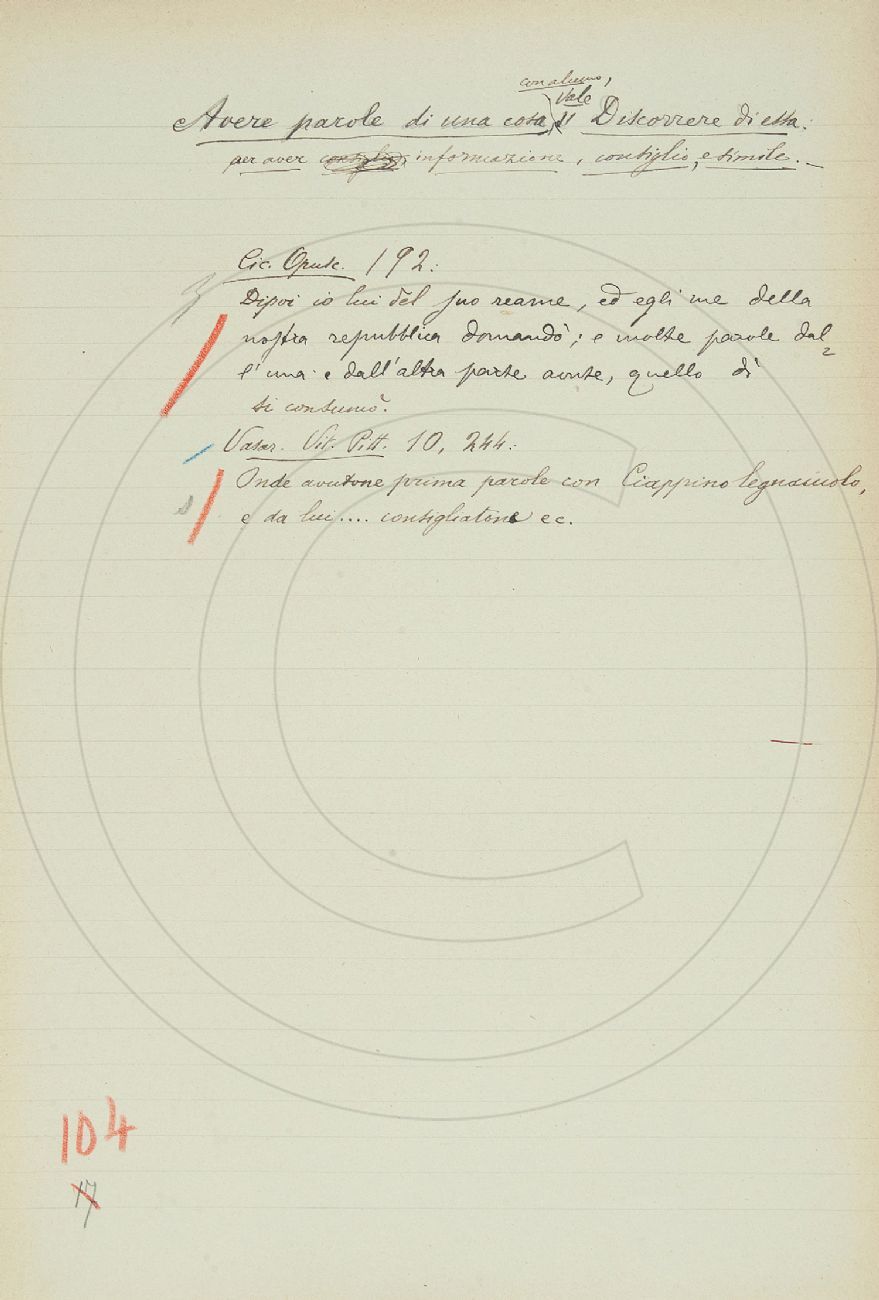 con alcuno,
Vale
Avere parole di una cosa, Discorrere di essa:
per aver consiglio, informazione, consiglio, e simile.
Cic. Opusc. 192:
Dipoi io lui del suo reame, ed egli me della
nostra repubblica domandò; e molte parole dal=
l'una e dall'altra parte avute, quello dì
si consumò.
Vasar. Vit. Pitt. 10, 244:
Onde avutone prima parole con Ciappino legnaiuolo,
e da lui.... consigliatone ec.
104
17